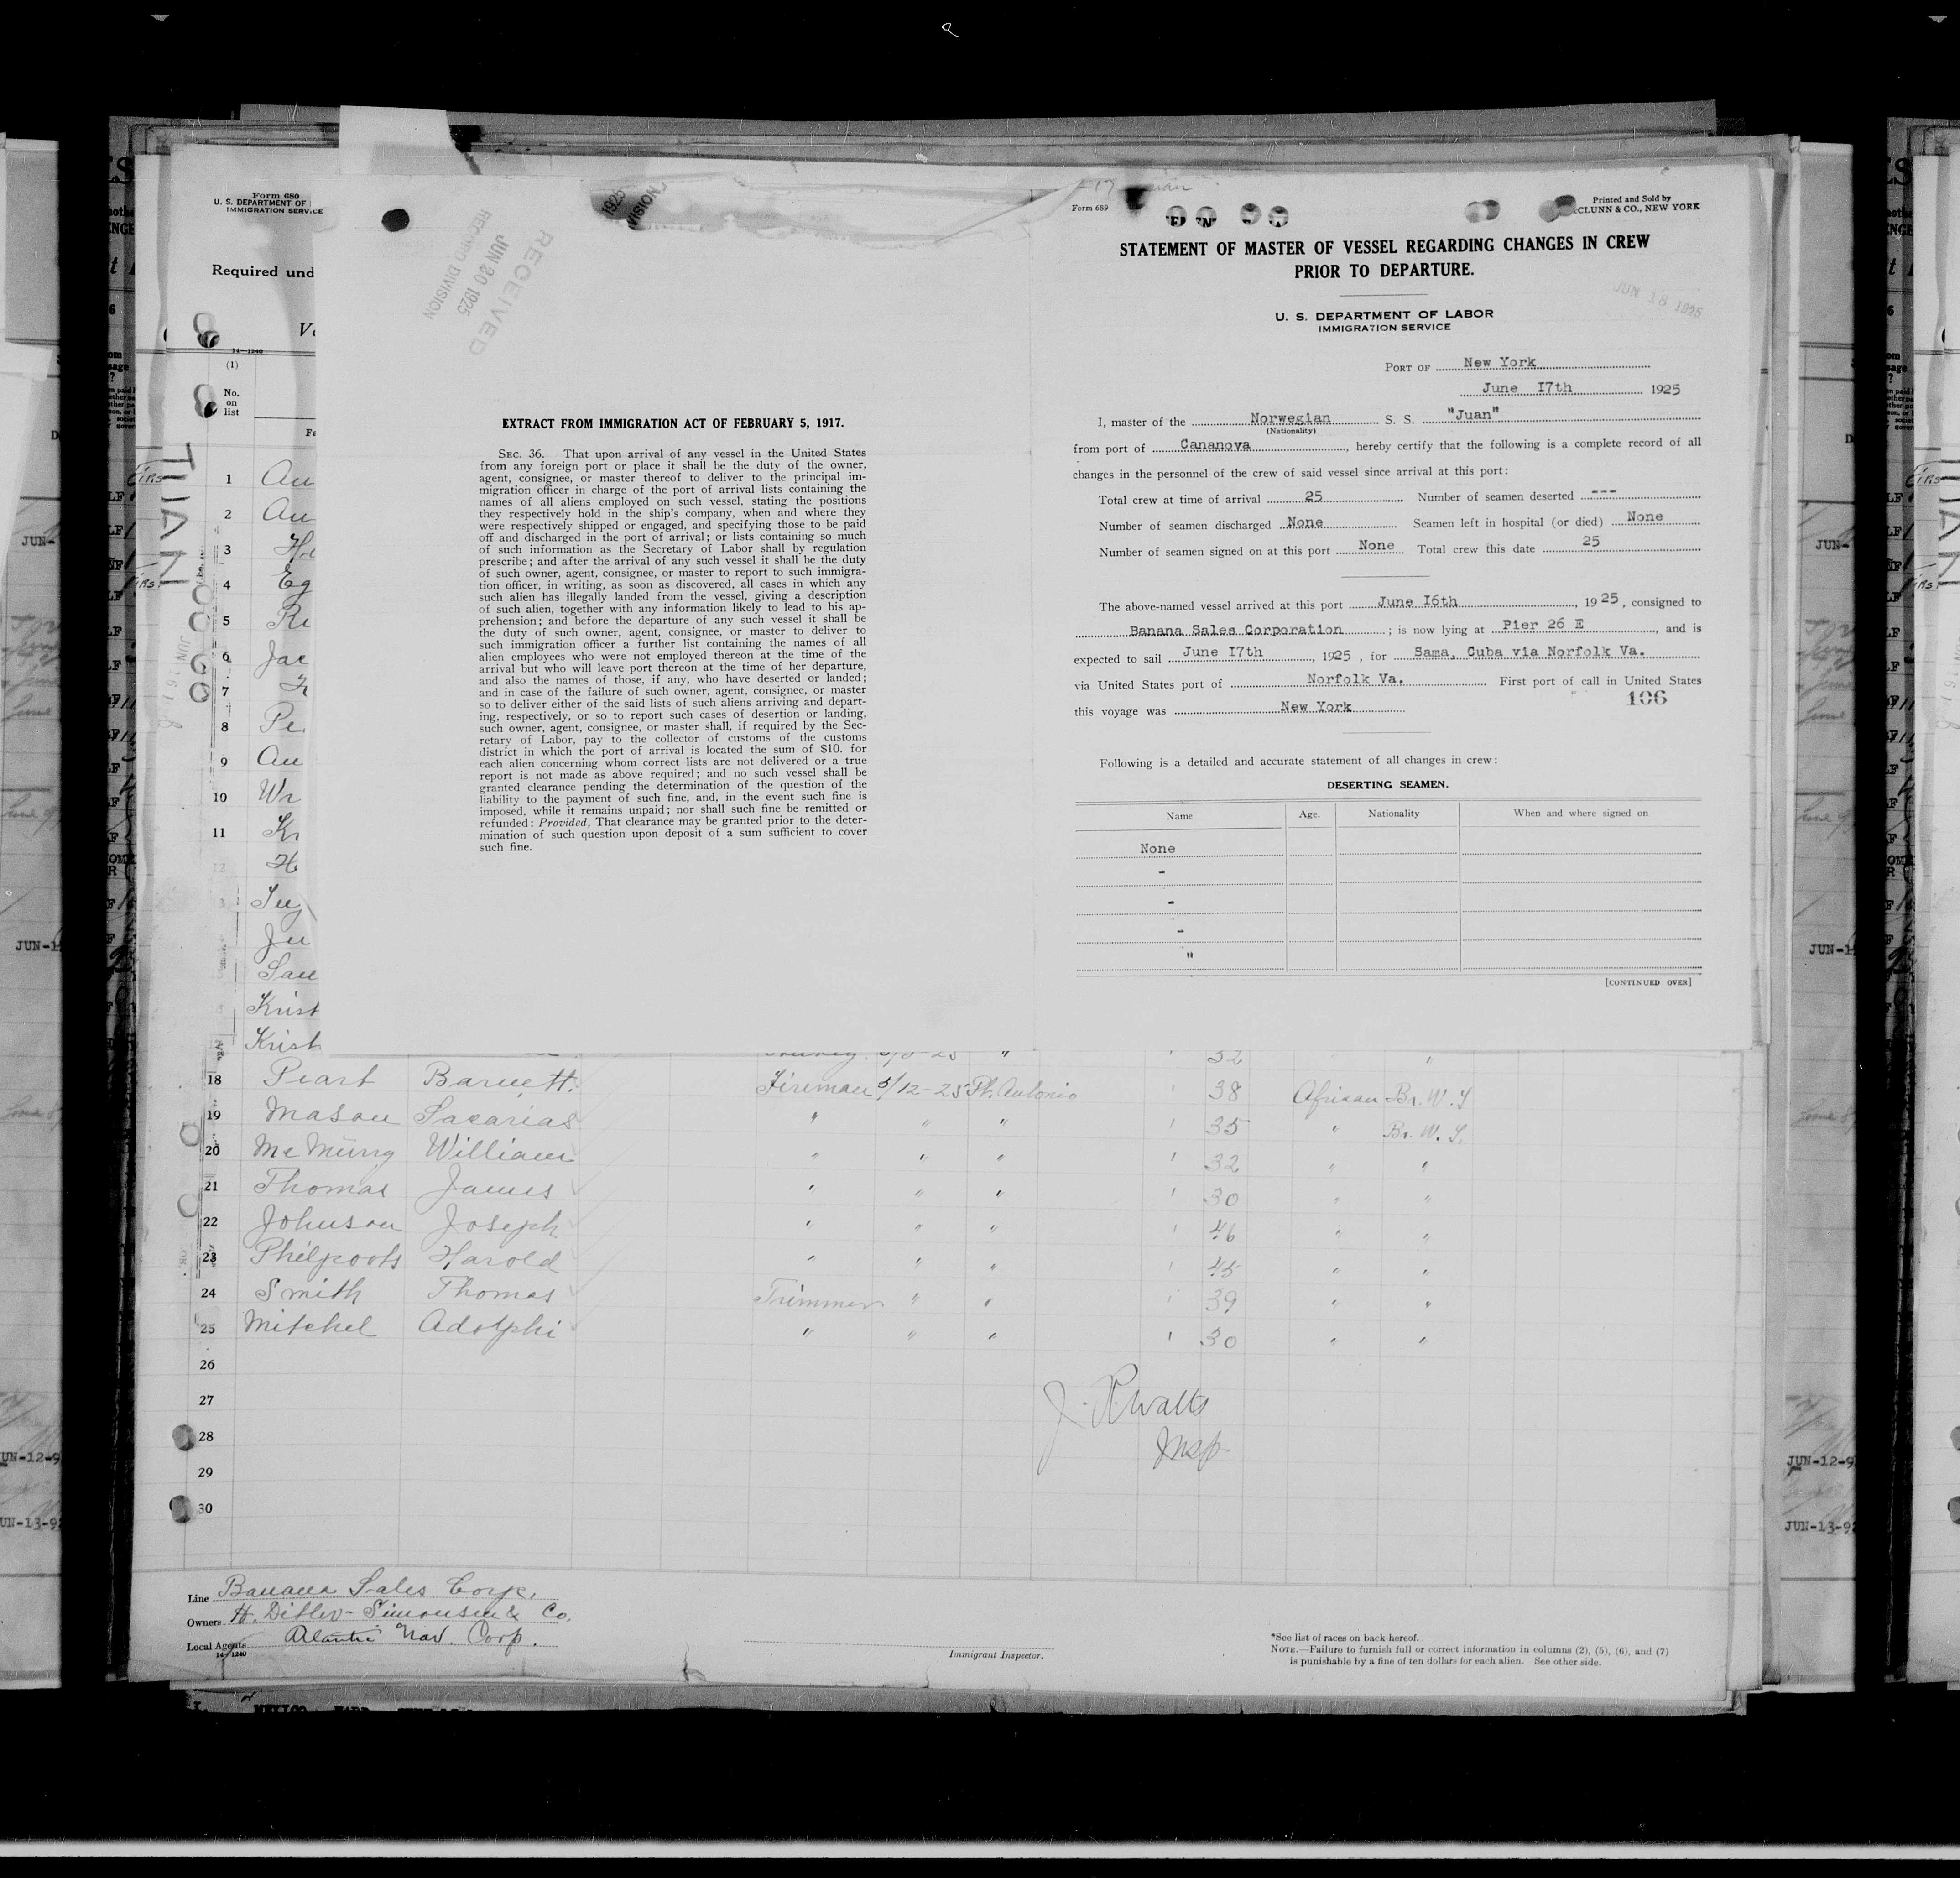 Form 680
U. S. DEPARTMENT OF
IMMIGRATION SERVICE
Required und
14—1240
(1)
No.
on
list
1 Au
2 Au
3
4 Eg
5
6 Jac
7
8 Pe
9 Au
10 Wr
11 Kr
12
Jen
Sau
Krist
Krist
JUAN
RECEIVED
JUN 20 1925
RECORD DIVISION
EXTRACT FROM IMMIGRATION ACT OF FEBRUARY 5, 1917.
SEC. 36. That upon arrival of any vessel in the United States
from any foreign port or place it shall be the duty of the owner,
agent, consignee, or master thereof to deliver to the principal im-
migration officer in charge of the port of arrival lists containing the
names of all aliens employed on such vessel, stating the positions
they respectively hold in the ship's company, when and where they
were respectively shipped or engaged, and specifying those to be paid
off and discharged in the port of arrival; or lists containing so much
of such information as the Secretary of Labor shall by regulation
prescribe; and after the arrival of any such vessel it shall be the duty
of such owner, agent, consignee, or master to report to such immigra-
tion officer, in writing, as soon as discovered, all cases in which any
such alien has illegally landed from the vessel, giving a description
of such alien, together with any information likely to lead to his ap-
prehension; and before the departure of any such vessel it shall be
the duty of such owner, agent, consignee, or master to deliver to
such immigration officer a further list containing the names of all
alien employees who were not employed thereon at the time of the
arrival but who will leave port thereon at the time of her departure,
and also the names of those, if any, who have deserted or landed;
and in case of the failure of such owner, agent, consignee, or master
so to deliver either of the said lists of such aliens arriving and depart-
ing, respectively, or so to report such cases of desertion or landing,
such owner, agent, consignee, or master shall, if required by the Sec-
retary of Labor, pay to the collector of customs of the customs
district in which the port of arrival is located the sum of $10. for
each alien concerning whom correct lists are not delivered or a true
report is not made as above required; and no such vessel shall be
granted clearance pending the determination of the question of the
liability to the payment of such fine, and, in the event such fine is
imposed, while it remains unpaid; nor shall such fine be remitted or
refunded: Provided, That clearance may be granted prior to the deter-
mination of such question upon deposit of a sum sufficient to cover
such fine.
Form 689
Printed and Sold by
CLUNN & CO., NEW YORK
STATEMENT OF MASTER OF VESSEL REGARDING CHANGES IN CREW
PRIOR TO DEPARTURE.
JUN 18 1925
U. S. DEPARTMENT OF LABOR
IMMIGRATION SERVICE
PORT OF New York
June I7th 1925
I, master of the Norwegian S. S. "Juan"
(Nationality)
from port of Cananova, hereby certify that the following is a complete record of all
changes in the personnel of the crew of said vessel since arrival at this port:
Total crew at time of arrival 25 Number of seamen deserted ---
Number of seamen discharged None Seamen left in hospital (or died) None
Number of seamen signed on at this port None Total crew this date 25
The above-named vessel arrived at this port June I6th, 1925, consigned to
Banana Sales Corporation; is now lying at Pier 26 E, and is
expected to sail June I7th, 1925, for Sama, Cuba via Norfolk Va.
via United States port of Norfolk Va. First port of call in United States
this voyage was New York
106
Following is a detailed and accurate statement of all changes in crew:
DESERTING SEAMEN.
Name Age. Nationality When and where signed on
None
-
-
-
"
[CONTINUED OVER]
32
18 Peart Barnett Fireman 5/12-25 Pt. Antonio 1 38 African Br. W. I
19 Mason Sacarias " " " 1 35 " Br. W. I.
20 McMurry William " " " 1 32 " "
21 Thomas James " " " 1 30 " "
22 Johnson Joseph " " " 1 46 " "
23 Philpoots Harold " " " 1 45 " "
24 Smith Thomas Trimmer " " 1 39 " "
25 Mitchel Adolphi " " " 1 30 " "
26
27
28
29
30
J. R. Watts
Insp
Line Banana Sales Corp.
Owners H. Ditlev-Simonsen & Co.
Local Agents Atlantic Nav. Corp.
14—1240
Immigrant Inspector.
*See list of races on back hereof.
NOTE.—Failure to furnish full or correct information in columns (2), (5), (6), and (7)
is punishable by a fine of ten dollars for each alien. See other side.
JUN-12-9
JUN-13-9